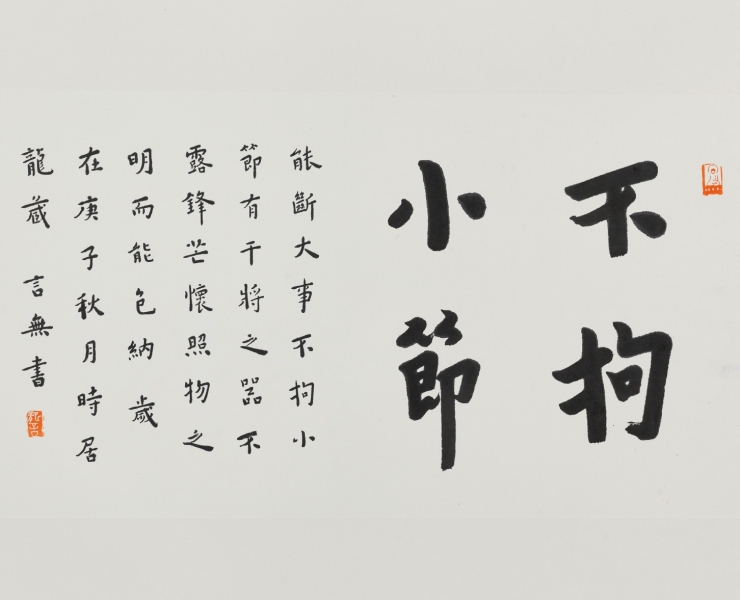 不拘
小節
能斷大事不拘小
節有干將之器不
露鋒芒懷照物之
明而能包納歲
在庚子秋月時居
龍藏言無書